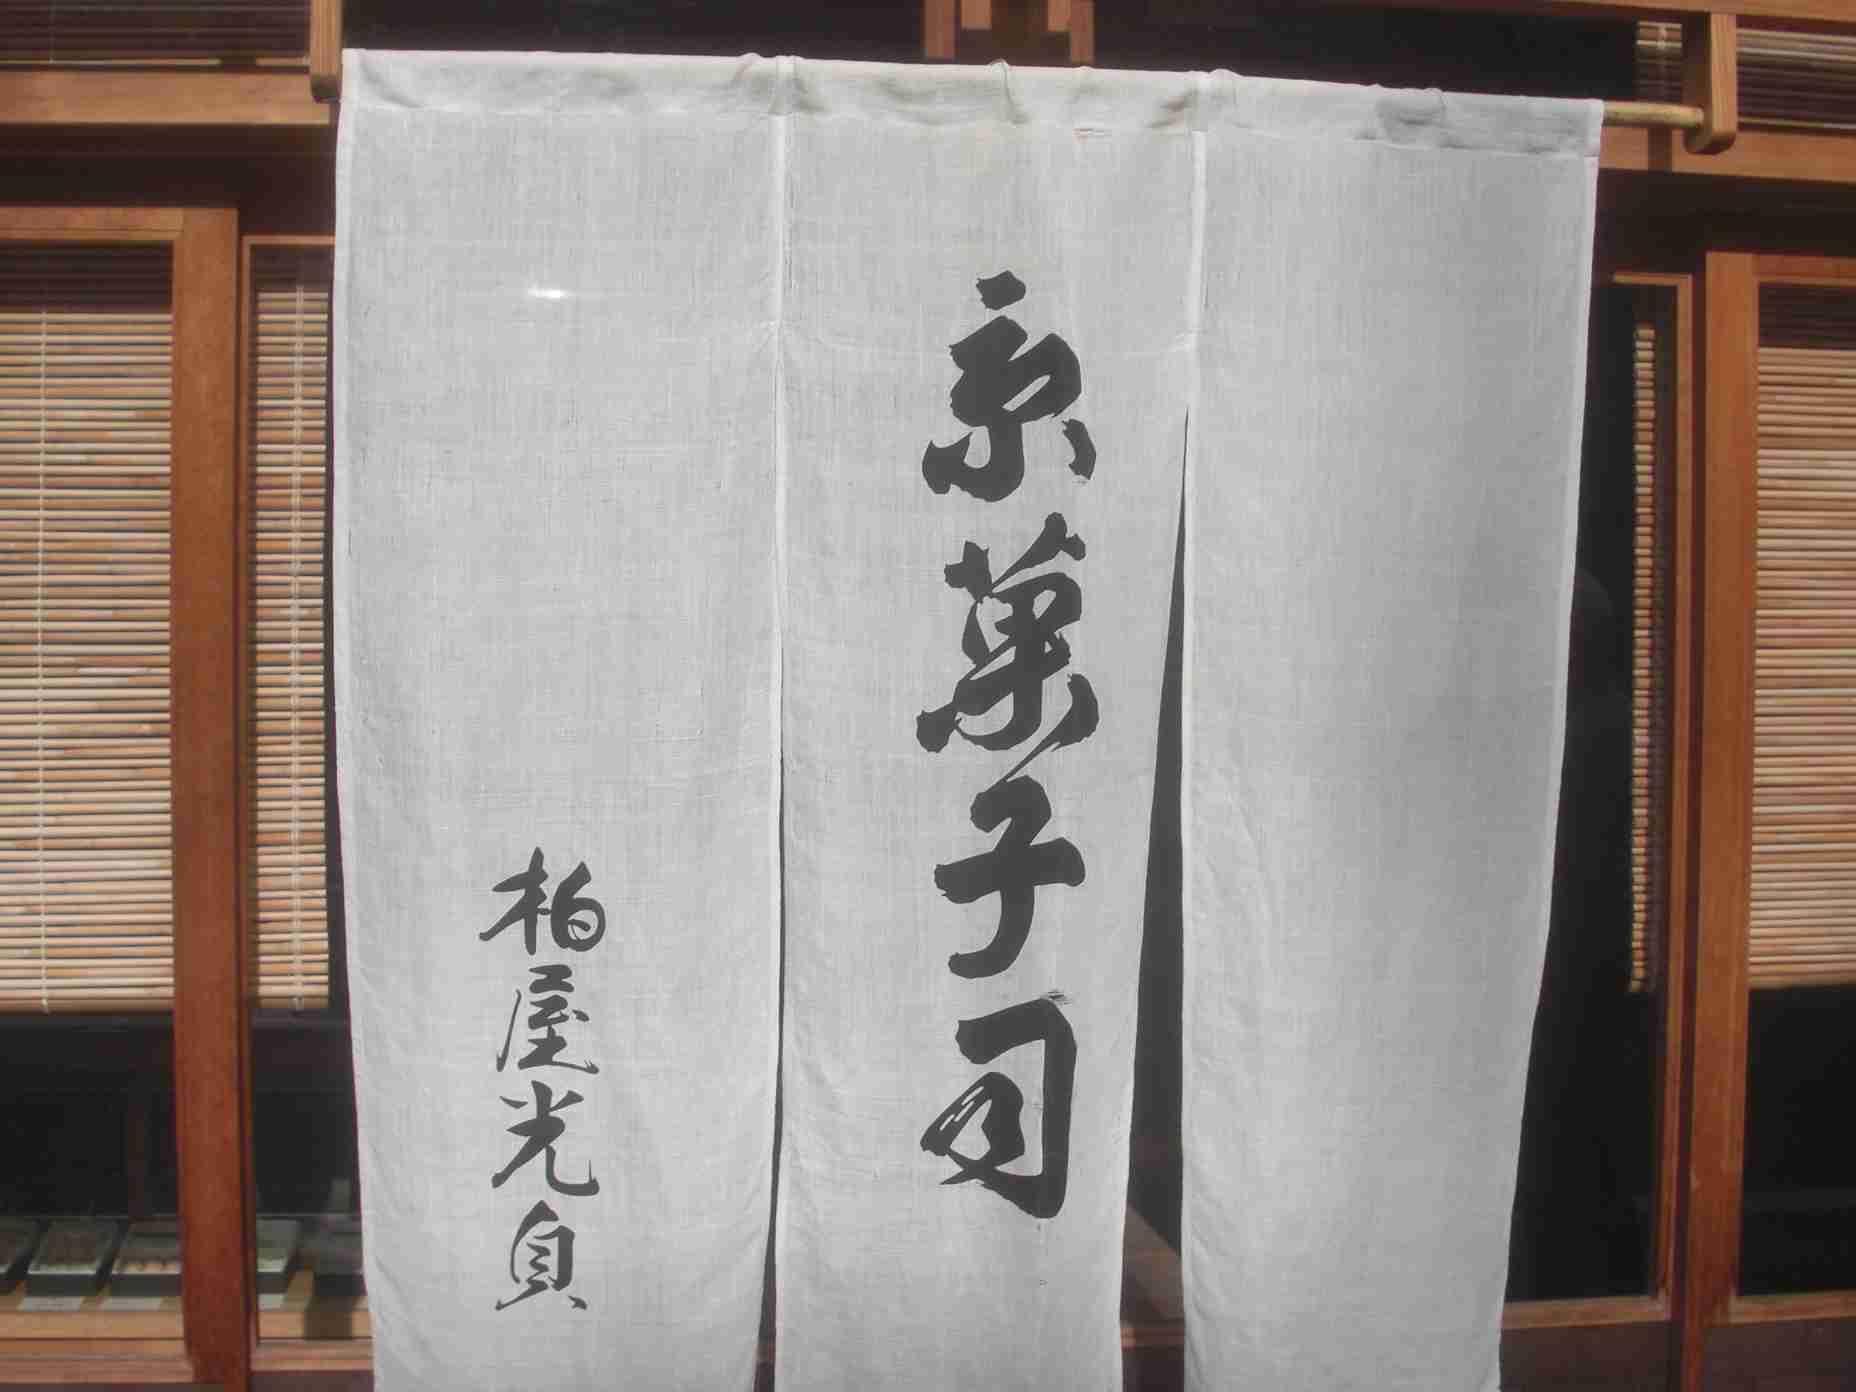 京菓子司
柏屋光貞